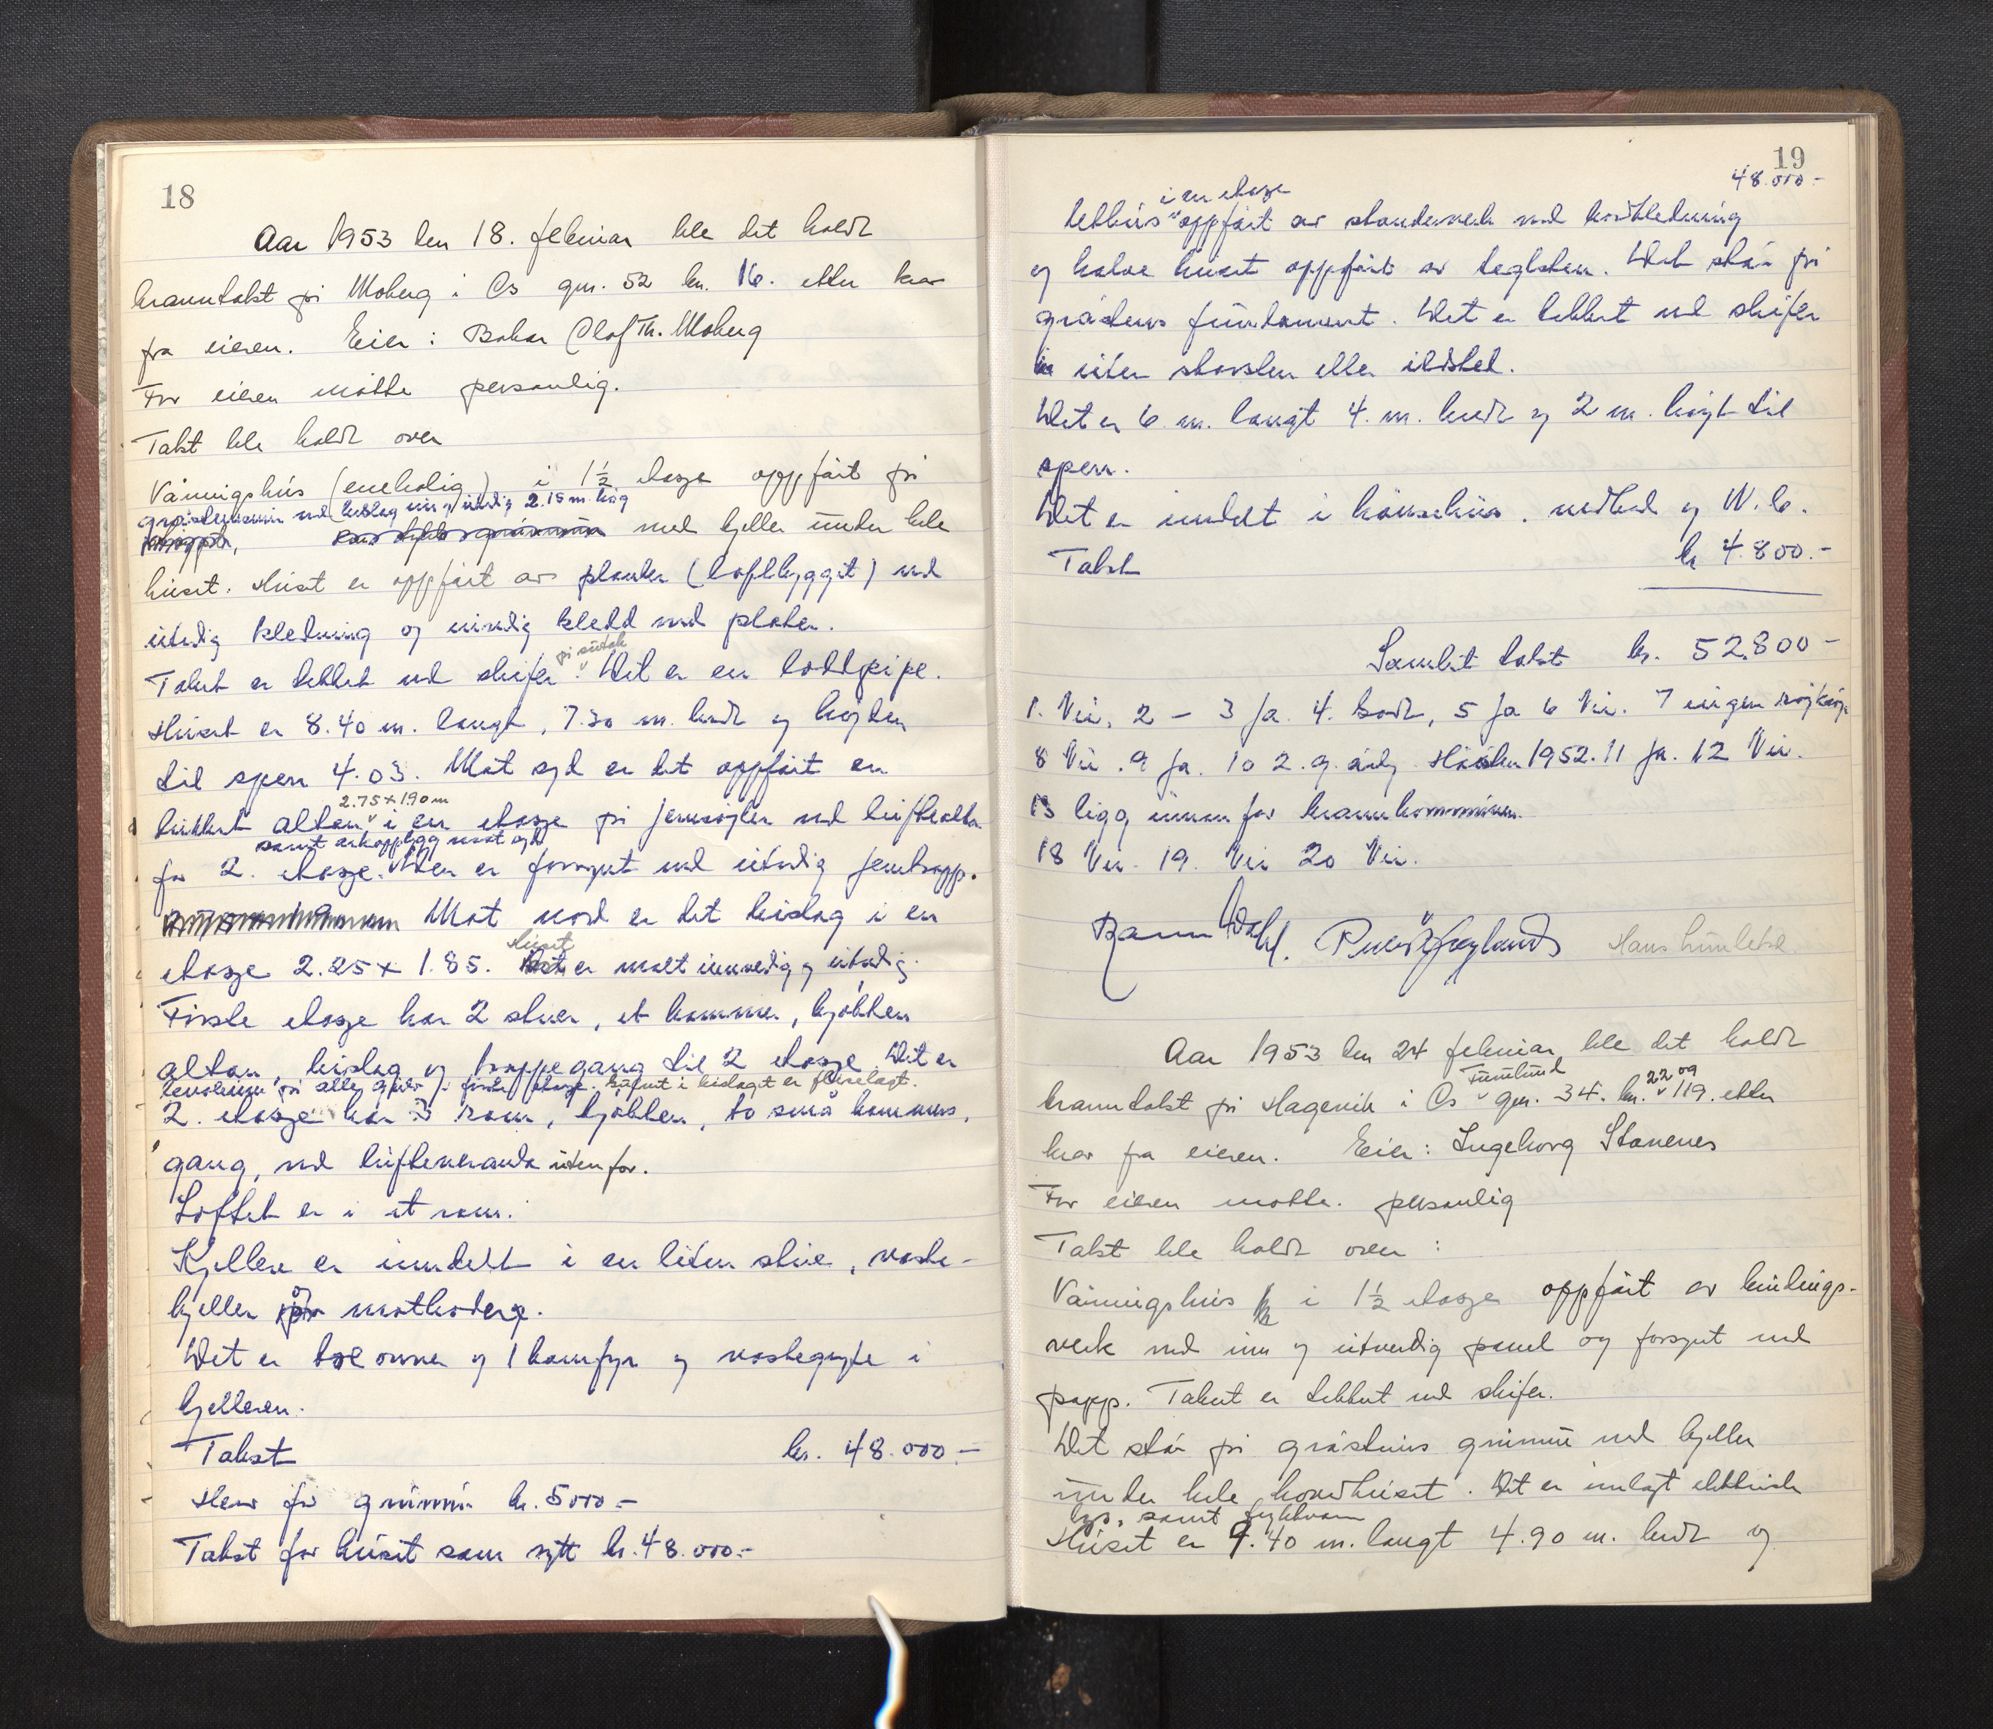 18
Aar 1953 den 18. februar ble det holdt
branntakst på Moberg i Os gnr. 52 bn. 16. etter krav
fra eieren. Eier: Baker Olaf Th. Moberg
For eieren møtte personlig.
Takst ble holdt over
Våningshus (enebolig) i 1½ etasje oppført på
gråstensmur med beslag inn og utvdig 2.15 m. høg
med kjeller under hele
huset. Huset er oppført av planker (loftbygget) med
utvdig kledning og innvdig kledd med plater.
på sutak
Taket er tekket med skifer. Det er en loddpipe.
Huset er 8.40 m. langt, 7.30 m. bredt og høyden
til sperr 4.03. Mot syd er det oppført en
2.75 x 1.90 m
lukket altan i en etasje på jernsøyler med luftaltan
samt arkoppbygg mot syd
for 2. etasje. Den er forsynt med utvdig jerntrapp.
Mot nord er det bislag i en
Huset
etasje 2.25 x 1.85. er malt innvedig og utvdig.
Første etasje har 2 stuer, et kammer, kjøkken
altan, bislag og trappegang til 2 etasje. Det er
lenoleum på alle gulv i første etasje. Gulvet i bislaget er fliselagt.
2. etasje har 3 rom, kjøkken, to små kammers,
gang, med luftveranda utenfor.
Loftet er i et rom.
Kjellere er inndelt i en liten stue, vaske-
kjeller og matboder.
Det er tre ovner og 1 komfyr og vaskegryte i
kjelleren.
Takst kr. 48.000.-
Herav for grunnmur kr. 5000-
Takst for huset som nytt kr. 48.000.-
19
48.000.-
i en etasje
Uthus oppført av standerverk med bordkledning
og halve huset oppført av teglsten. Det står på
gråstens fundament. Det er tekket med skifer
uten skorsten eller ildsted.
Det er 6 m. langt 4. m. bredt og 2 m. høgt til
sperr.
Det er inndelt i hønsehus. vedbod og W.C.
Takst kr 4.800.-
Samlet takst kr. 52.800-
1. Nei, 2 - 3 Ja. 4. Godt, 5 Ja 6 Nei. 7 ingen
8 Nei. 9 Ja. 10 2. g. årlig. Høsten 1952. 11 Ja. 12 Nei.
13 ligg innenfor brannkommunen.
18 Nei. 19. Nei 20 Nei.
Hans Lunletræ
Aar 1953 den 24 februar ble det holdt
22 og
branntakst på Hagevik i Os gnr. 34. bn. 119. etter
krav fra eieren. Eier: Ingeborg Stavenes
For eieren møtte. personlig
Takst ble holdt over:
Våningshus i 1½ etasje oppført av bindings-
verk med inn og utvendig panel og forsynt med
papp. Taket er tekket med skifer.
Det står på gråstens grunnmur med kjeller
under hele hovedhuset. Det er innlagt elektrisk
lys, samt
Huset er 9.40 m. langt 4.90 m. bredt og